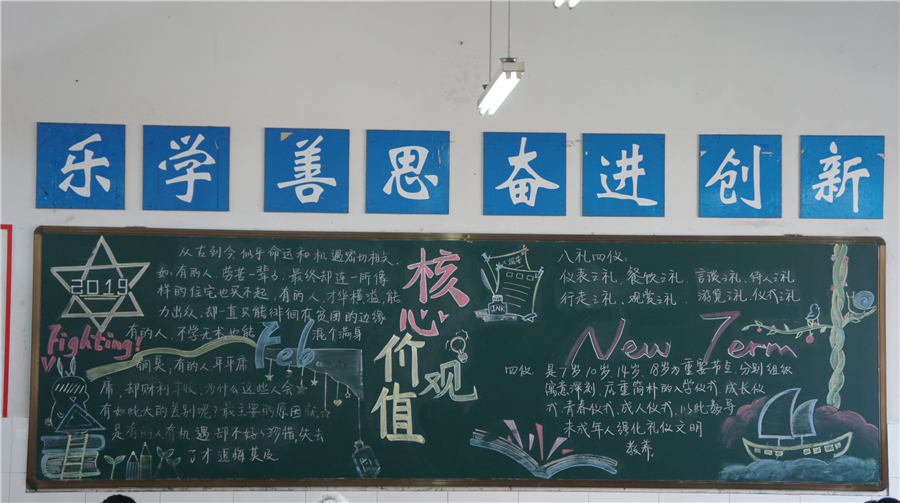 乐学善思奋进创新
2019
Fighting!
从古到今似乎命运和机遇密切相关,
如:有的人,劳苦一辈子,最终却连一所像
样的住宅也买不起,有的人,才华横溢,能
力出众,却一直只能徘徊在贫困的边缘
有的人,不学无术也能混个满身
铜臭,有的人平平庸
庸,却财利丰收,为什么这些人会
有如此大的差别呢?最主要的原因就
是有的人有机遇却不好好珍惜,失去
了才追悔莫及
Feb.
核心价值观
INK
八礼四仪:
仪表之礼、餐饮之礼、言谈之礼、待人之礼
行走之礼、观赏之礼、游览之礼、仪式之礼
New Term
四仪 是7岁、10岁、14岁、18岁为重要节点,分别组织
寓意深刻、庄重简朴的入学仪式、成长仪
式、青春仪式、成人仪式,以此教导
未成年人强化礼仪文明
教养.